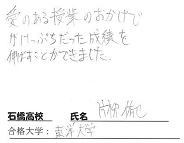 愛のある授業のおかげで
がけっぷちだった成績を
伸ばすことができました。
石橋高校 氏名 片柳 佑也
合格大学: 東洋大学